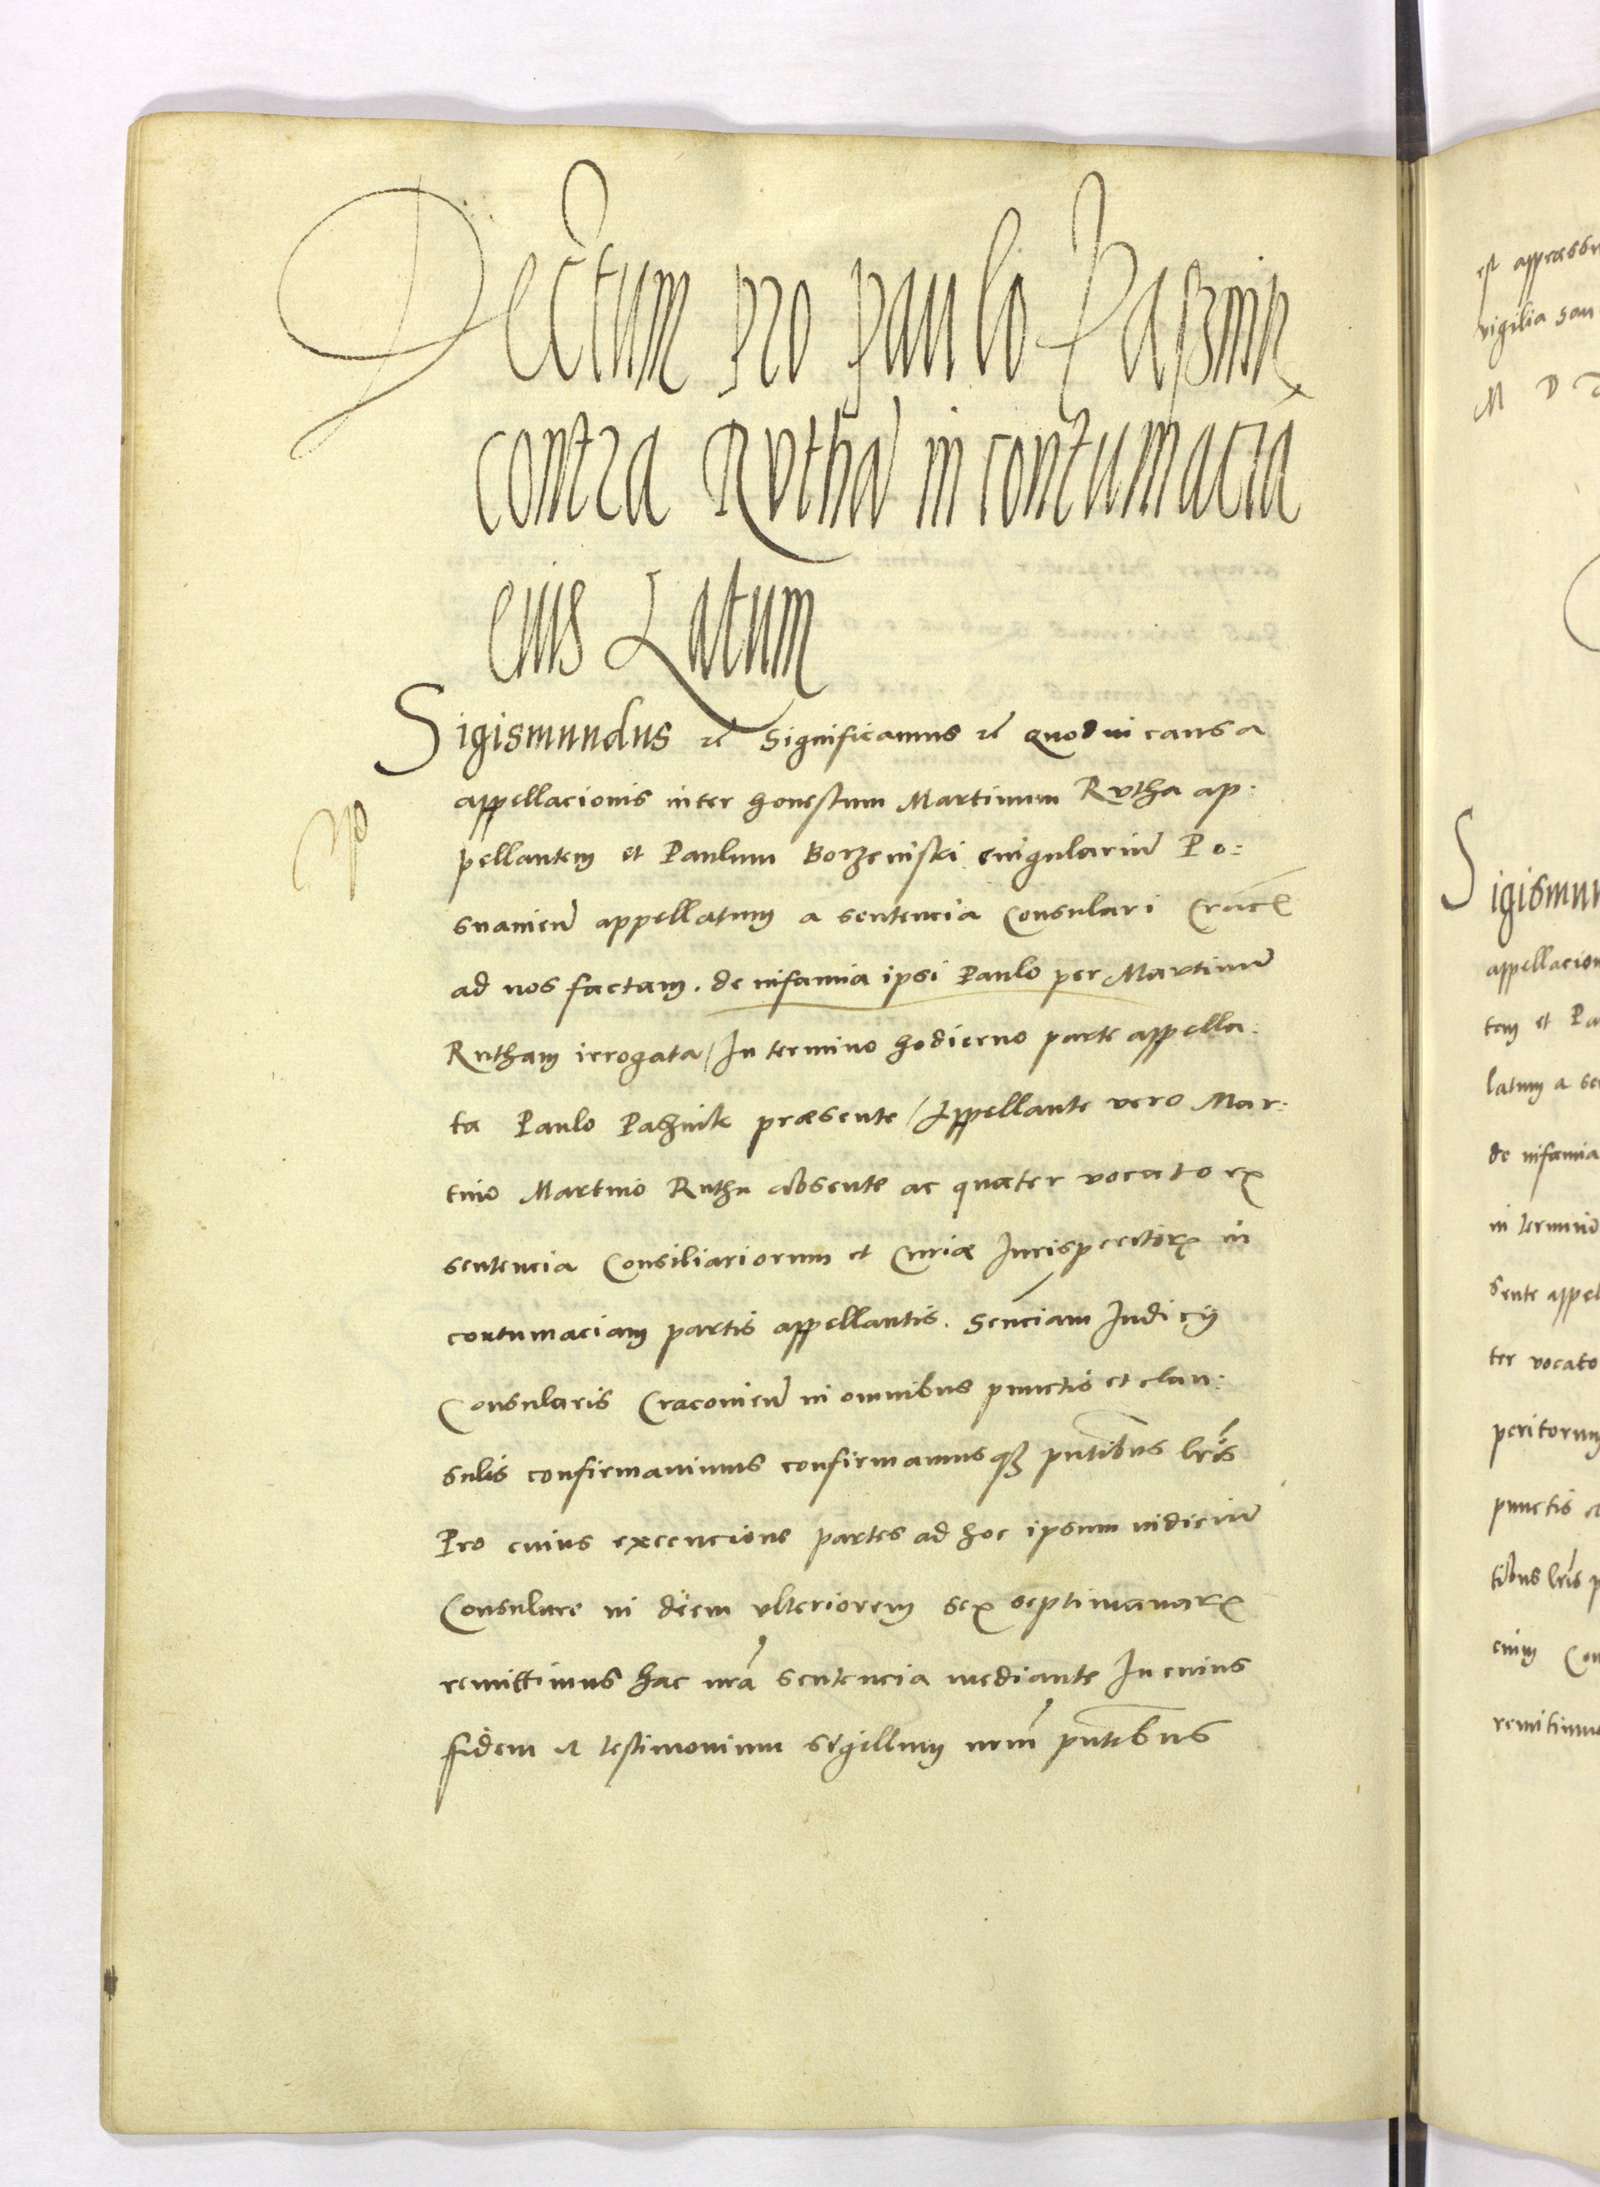 Decretum pro Paulo Paßnik
contra Rutha in contumaciā
eius Latum
Sigismundus rē Significamus rē Quod in causa
appellacionis inter honestum Martinum Rutha ap:
pellantem et Paulum Borzeniski cingulariū Po:
snanien̄ appellatum a sentencia Consulari Crac̄
ad nos factam. de infamia ipsi Paulo per Martinū
Rutham irrogata / In termino hodierno parte appella:
ta Paulo Paßnik præsente / Appellante vero Mar:
tino Martino Rutha absente ac quater vocato ex
sentencia Consiliariorum et Curiæ Iurisperitorꝝ in
contumaciam partis appellantis. Senciam Iudicij
Consularis Cracovien̄ in omnibus punctis et clau:
sulis confirmavimus confirmamusqꝫ pn̄tibus lr̄is
Pro cuius execucione partes ad hoc ipsum iudiciū
Consulare in diem ulteriorem sex septimanarꝝ
remittimus hac nr̄a sentencia mediante In cuius
fidem et testimonium sigillum nr̄m pn̄tibus
est appressu
vigilia san
M D
Sigismun
appellacion
tem et Pa
latum a se
de infamia
in terminō
sente appel
ter vocato
peritorum
punctis
tibus lr̄is p
enim Con
remittimu